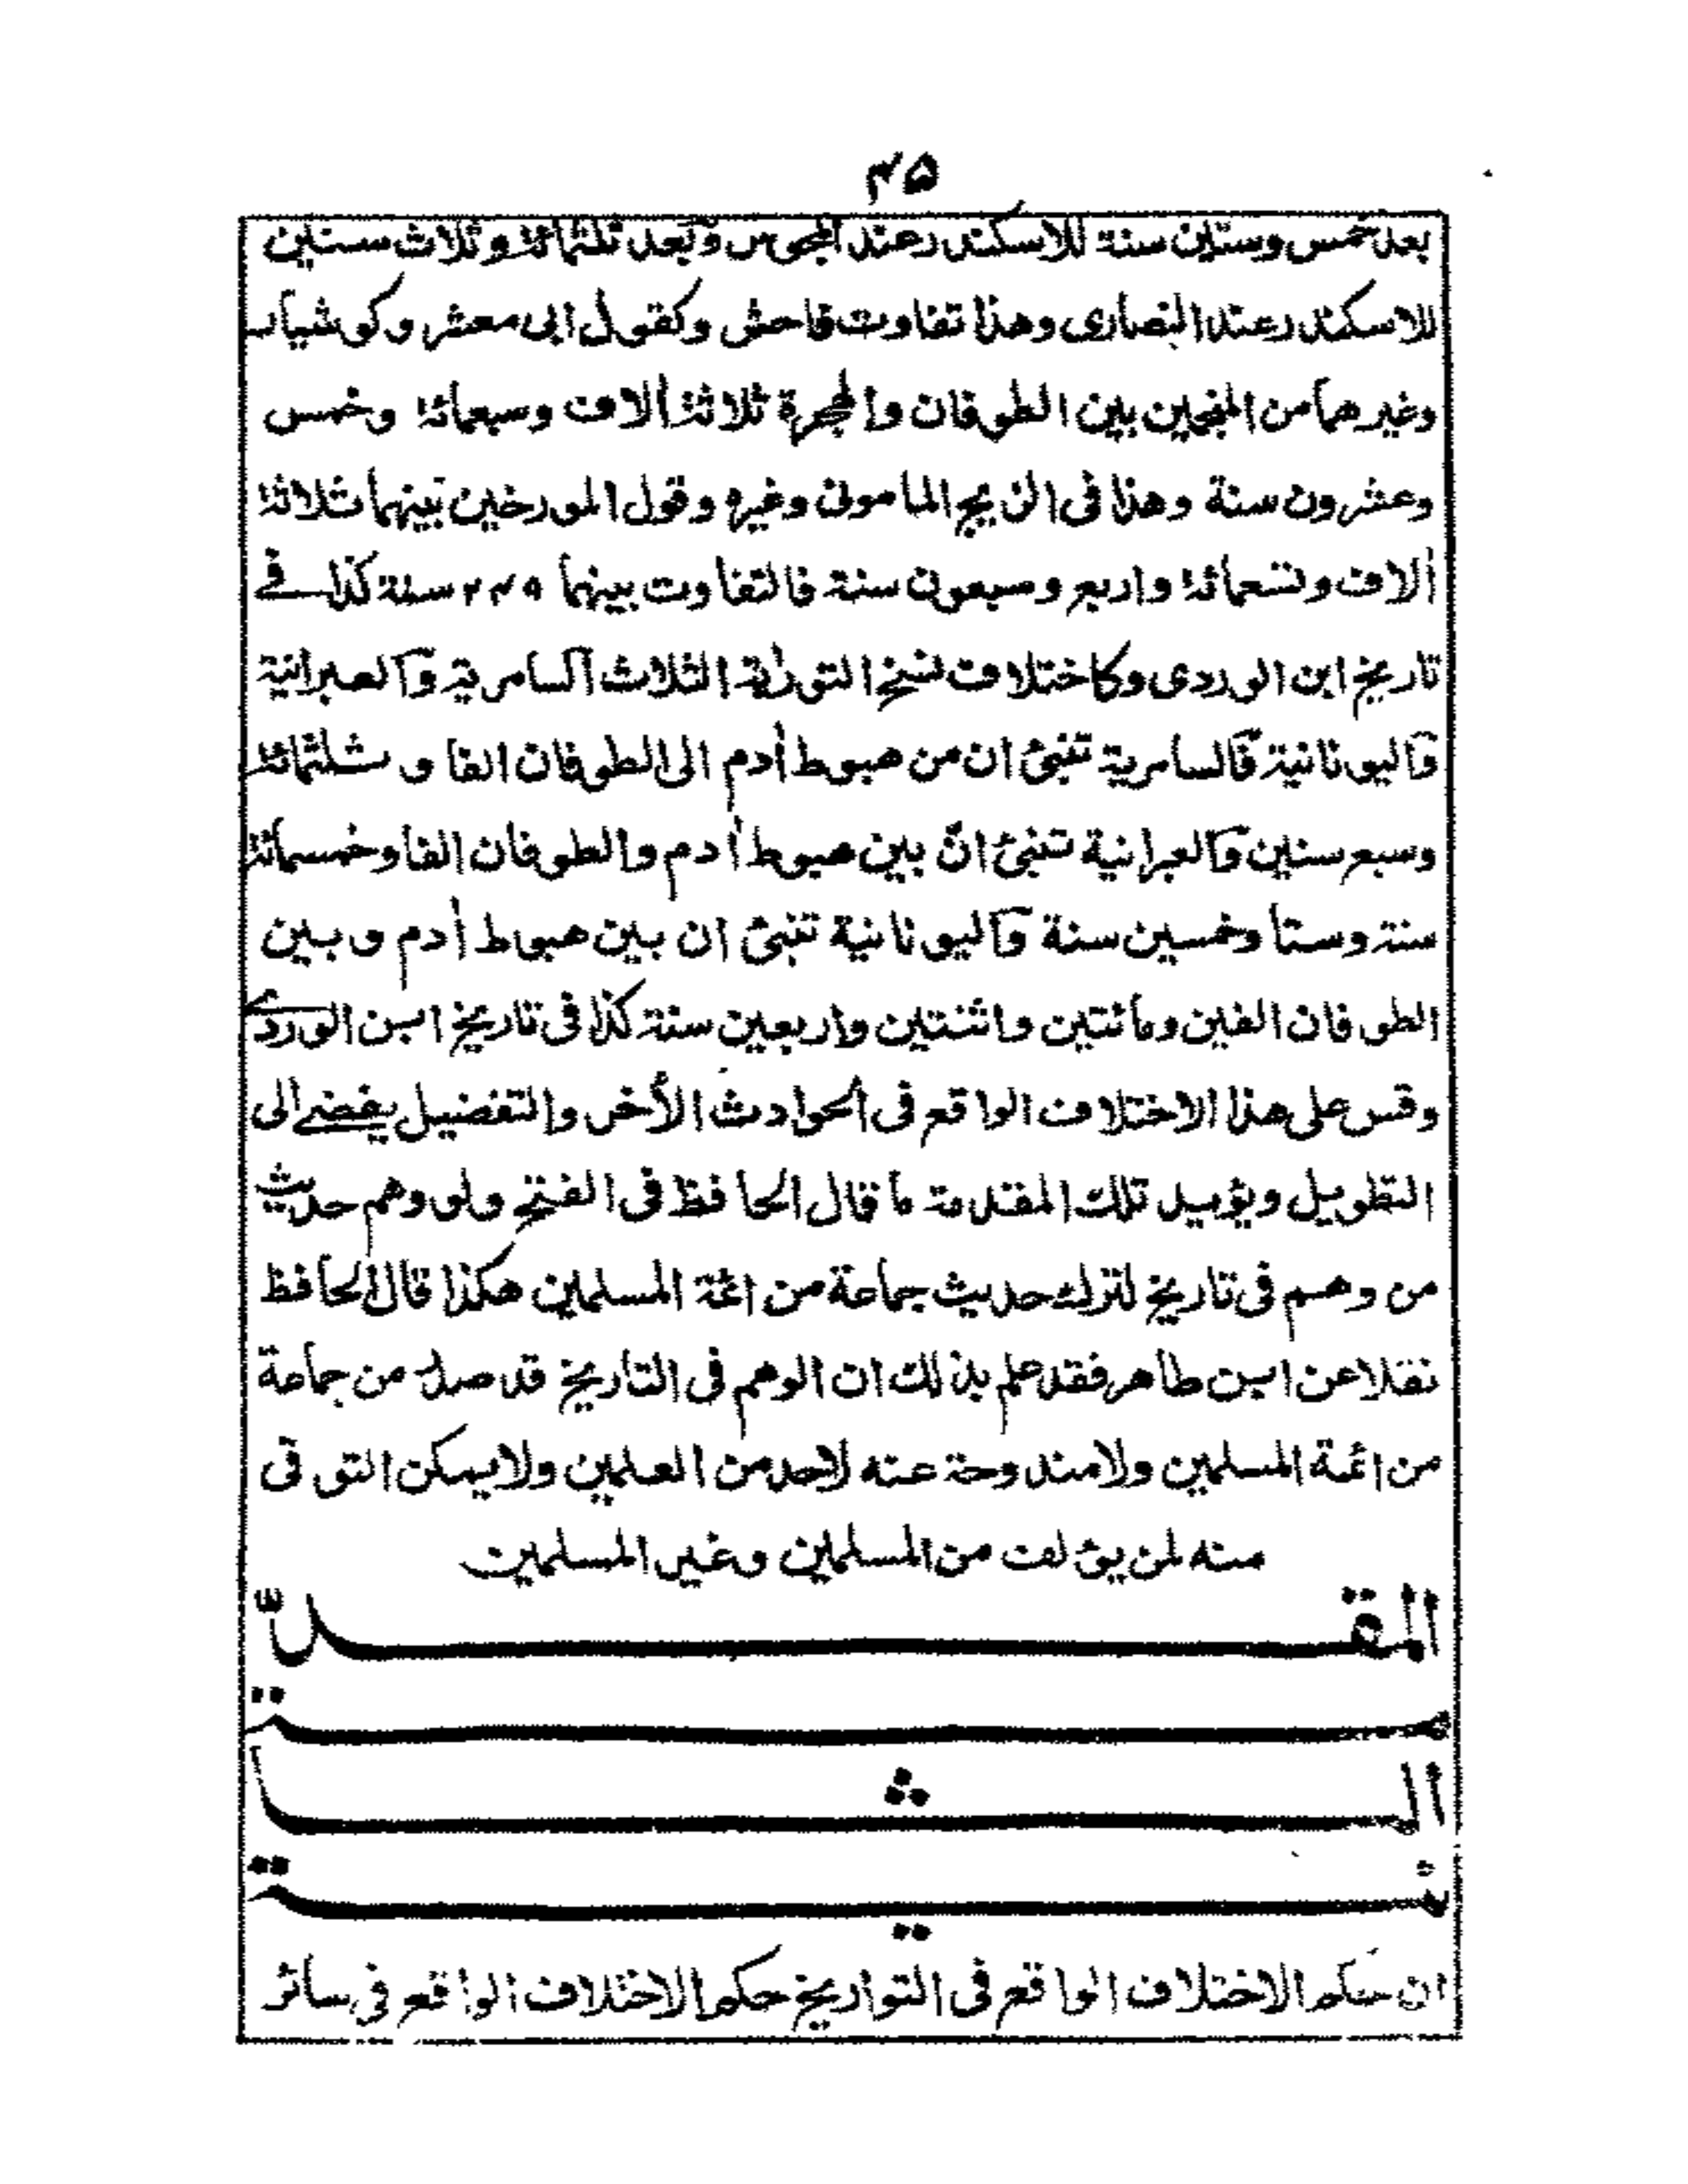 ۴۵
بعد خمس وستين سنة للاسكندر عند المجوس وبعد ثلثمائة وثلاث سنين
للاسكندر عند النصارى وهذا تفاوت فاحش وكقول ابى معشر وكوشيار
وغيرهما من المنجمين بين الطوفان والهجرة ثلاثة ألاف وسبعمائة وخمس
وعشرون سنة وهذا فى الزيج المامونى وغيره وقول المورخين بينهما ثلاثة
ألاف وتسعمائة واربع وسبعون سنة فالتفاوت بينهما ۲۴۹ سنة كذا فے
تاريخ ابن الوردى وكاختلاف نسخ التوراة الثلاث السامرية والعبرانية
واليونانية فالسامرية تنبئ ان من هبوط أدم الى الطوفان الفا و ثلثمائة
وسبع سنين والعبرانية تنبئ انّ بين هبوط أدم والطوفان الفا وخمسمائة
سنة وستا وخمسين سنة واليونانية تنبئ ان بين هبوط أدم وبين
الطوفان الفين ومائتين واثنتين واربعين سنة كذا فى تاريخ ابن الوردے
وقس على هذا الاختلاف الواقع فى الحوادث الأخر والتفضيل يفضے الى
التطويل ويؤيد تلك المقدمة ما قال الحافظ فى الفتح ولو وهم حديث
من وهم فى تاريخ لترك حديث جماعة من ائمة المسلمين هكذا قال الحافظ
نقلا عن ابن طاهر فقد علم بذلك ان الوهم فى التاريخ قد صدر من جماعة
من ائمة المسلمين ولا مندوحة عنه لاحد من العلمين ولا يمكن التوقى
منه لمن يؤلف من المسلمين وغير المسلمين
المقدّ
مة
الثا
نية
ان حكم الاختلاف الواقع فى التواريخ حكم الاختلاف الواقع فى سائر